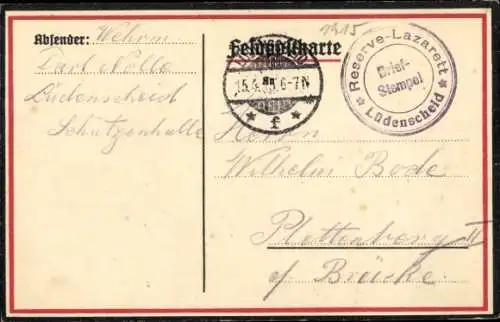 1915
Feldpostkarte
Absender: Wehrm.
Carl Nolte
Lüdenscheid
Schützenhalle
15.4. 6-7N
* f *
Reserve-Lazarett
Brief-
Stempel
* Lüdenscheid *
An
Herrn
Wilhelm Bode
Plettenberg II
Brücke.